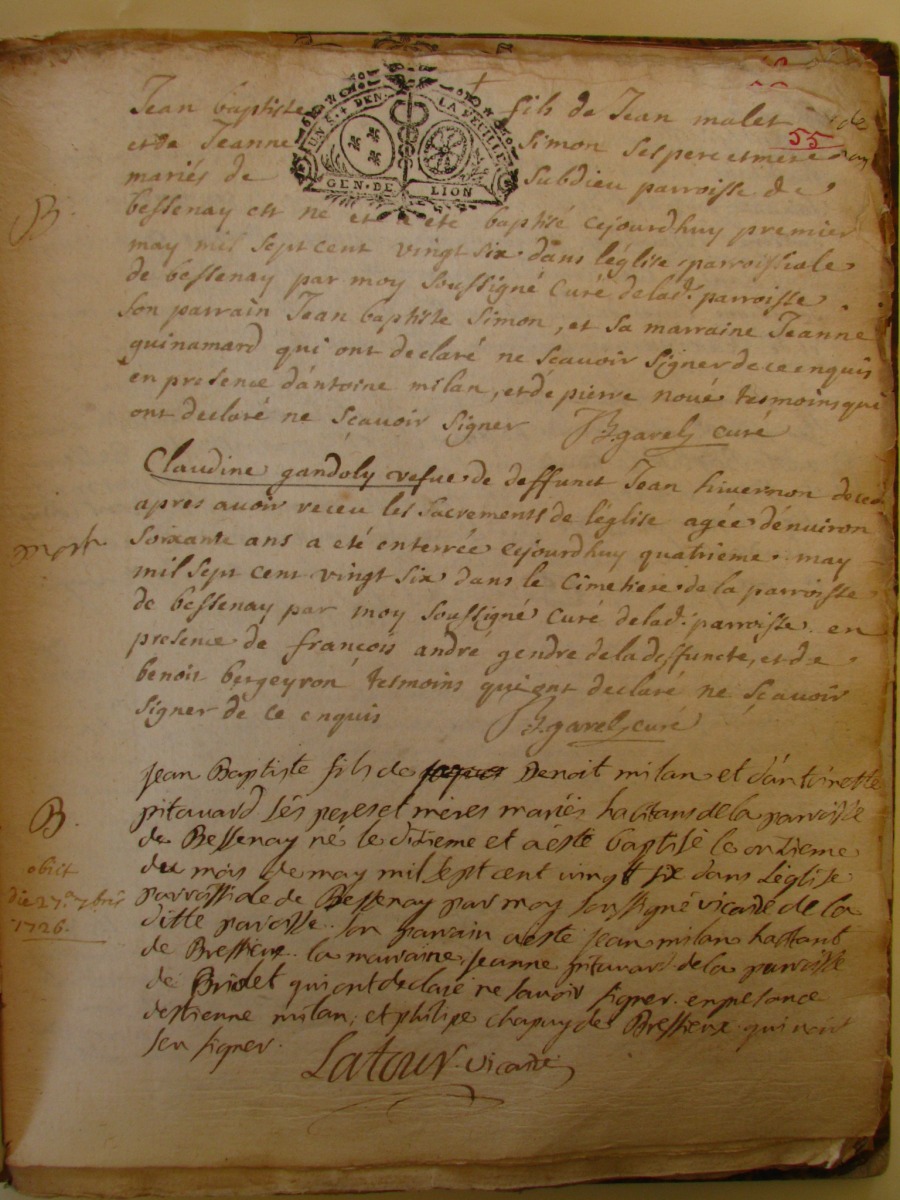 Jean baptiste fils de Jean malet
UN S. + DEN. LA FEUILLE
GEN. DE LION
55
et de Jeanne Simon ses pere et mere
mariés de Subdieu parroisse de
B.
bessenay est né et a eté baptisé cejourdhuy premier
may mil sept cent vingt six dans léglise parroissiale
de bessenay par moy soussigné curé de lad. parroisse
son parrain Jean baptiste Simon, et sa marraine Jeanne
guinamard qui ont declaré ne scavoir signer de ce enquis
en presence dántoine milan, et de pierre noué tesmoins qui
ont declaré ne scavoir signer garel curé
Claudine gandoly vefue de deffunct Jean hivernon
apres avoir receu les sacrements de léglise agée dénuiron
mort
soixante ans a eté enterrée cejourdhuy quatrieme may
mil sept cent vingt six dans le cimetiere de la parroisse
de bessenay par moy soussigné curé de lad. parroisse en
presence de françois andré gendre de la deffuncte, et de
benoit bergeyron tesmoins qui ont declaré ne scavoir
signer de ce enquis garel curé
Jean Baptiste fils de Benoit milan et dántoinette
pitavard ses peres et mères mariés habitans de la parroisse
B.
de Bessenay né le dizieme et a este baptisé le onzieme
obiit
du mois de may mil sept cent vingt six dans Léglise
die 27a 7bris
parrossiale de Bessenay par moy soussigné vicaire de la
1726.
ditte paroisse. son parrain a esté jean milan habitant
de Bressieux la marraine jeanne pitavard de la parroisse
de Briolet qui ont declaré ne savoir signer. en presance
destienne milan, et philipe chapuy de Bressieux qui nont
seu signer.
Latour vicaire